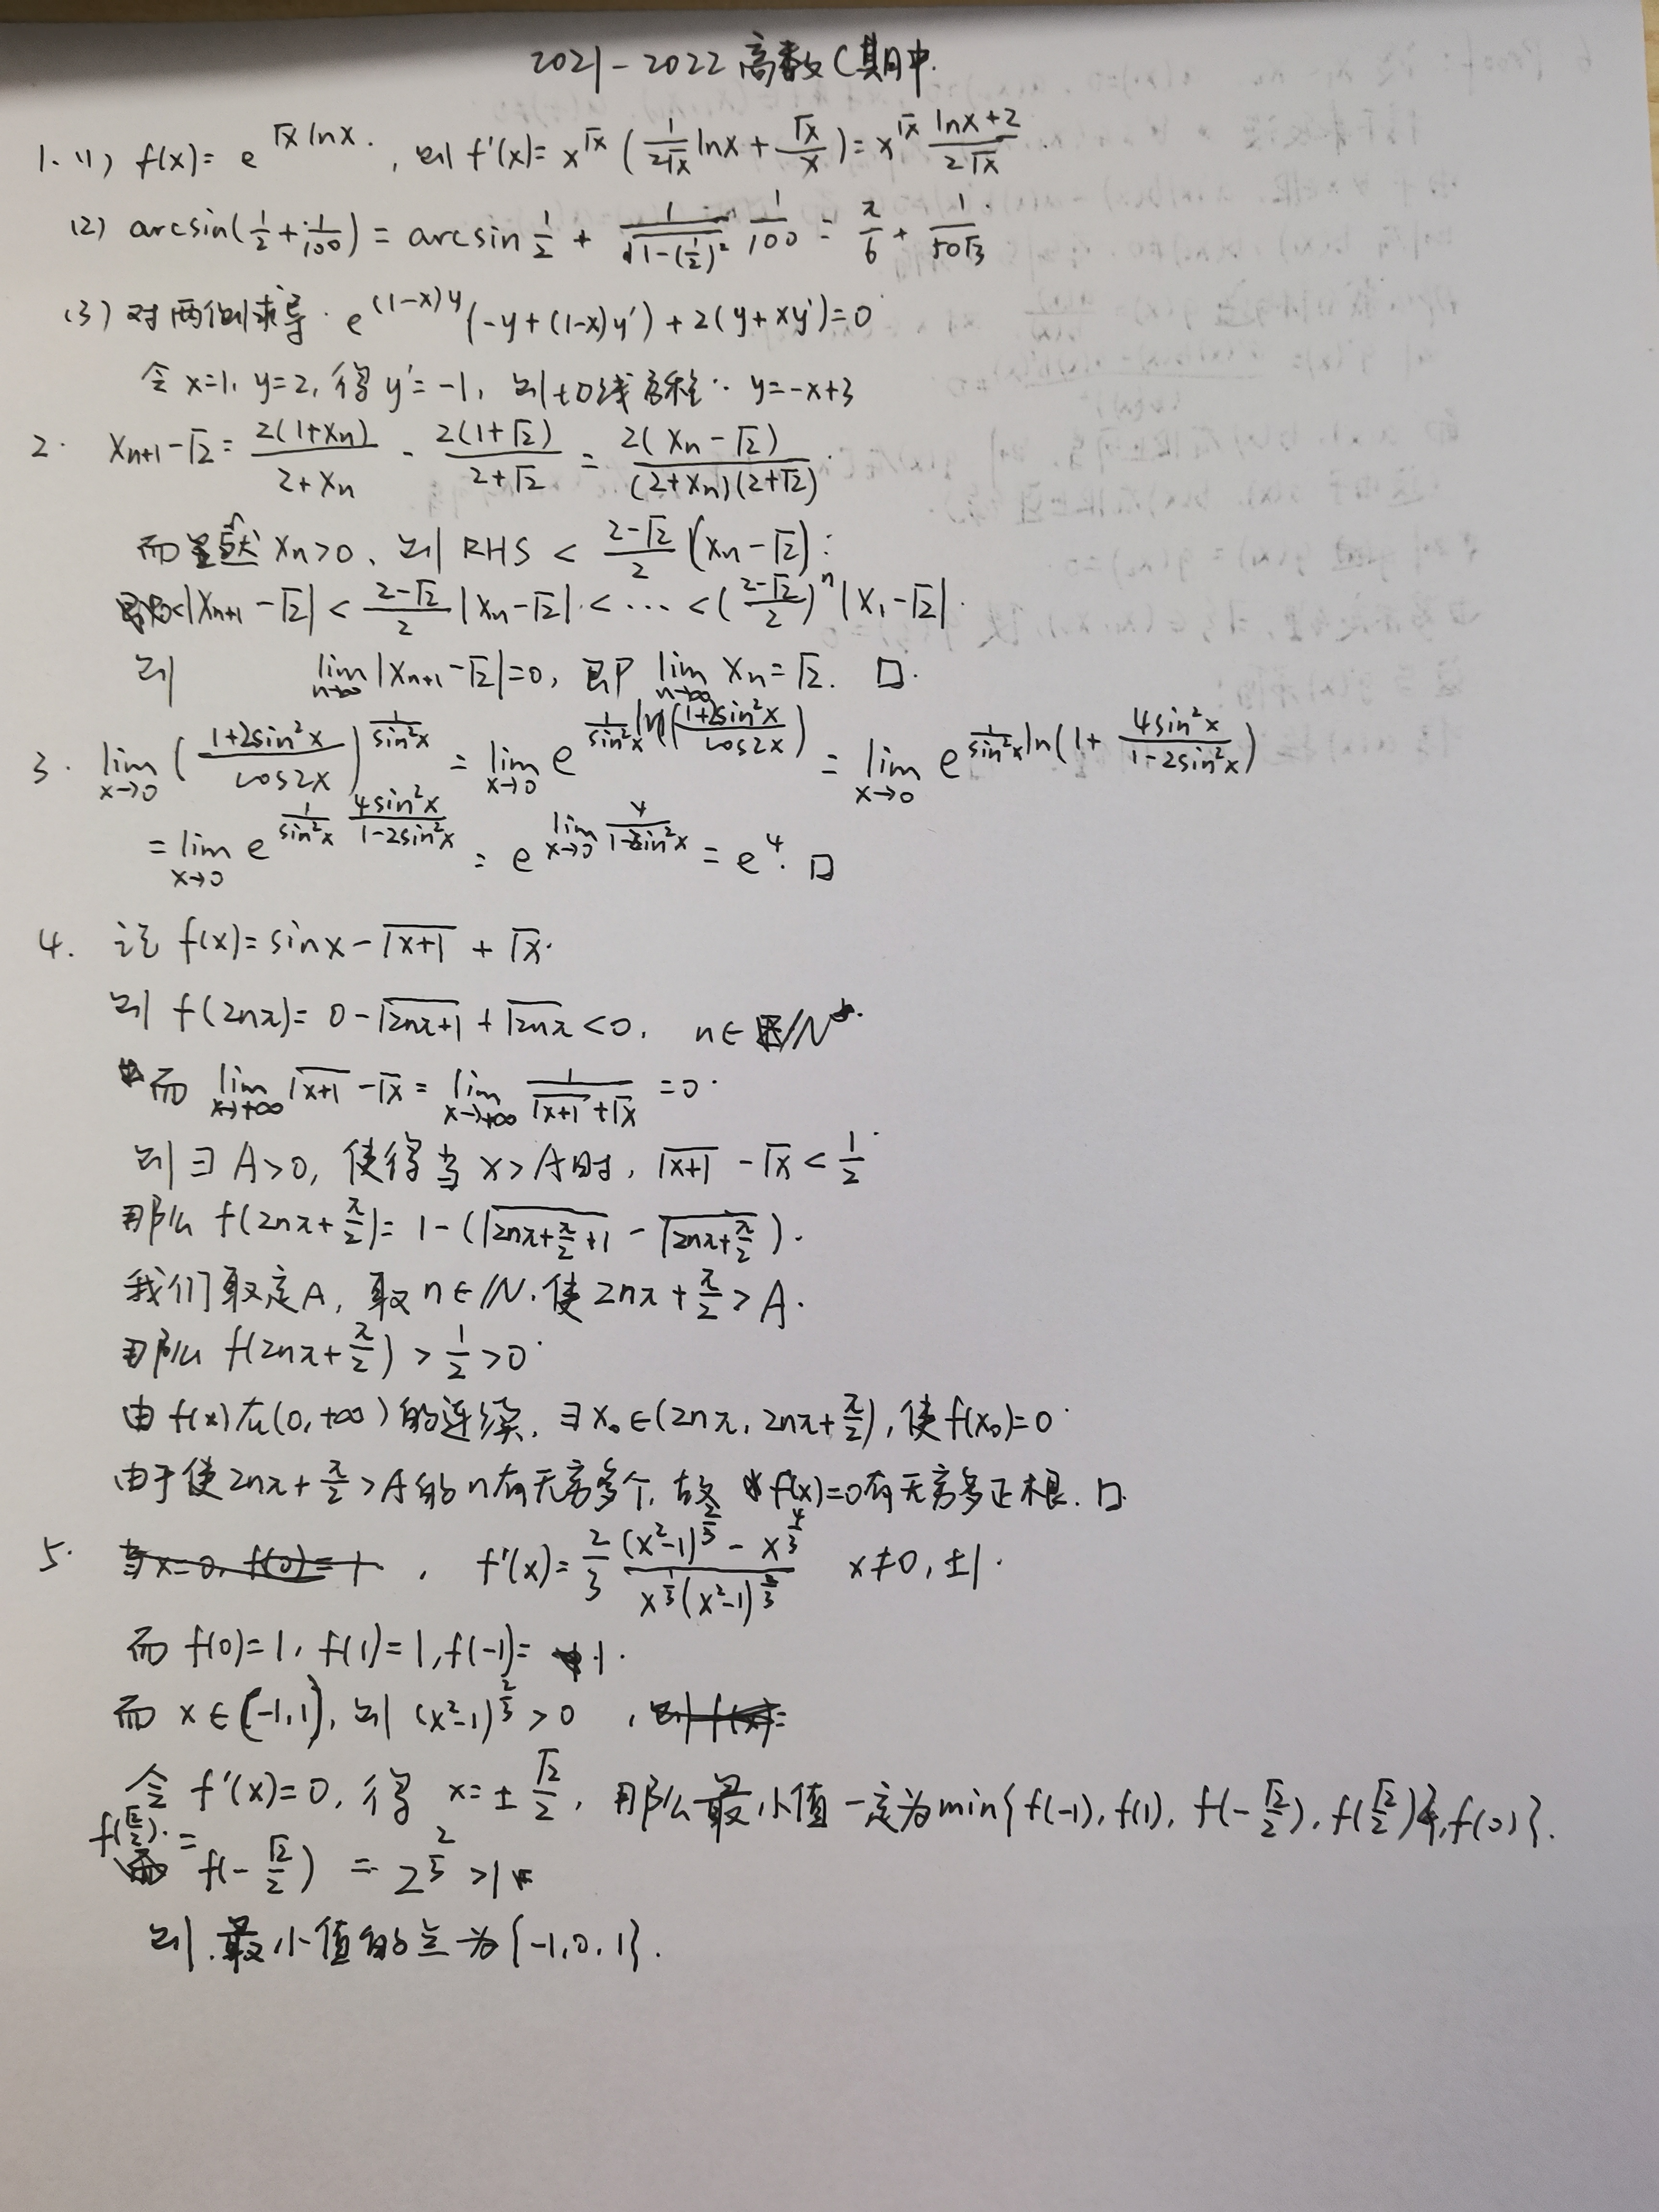 2021-2022 高数C期中.
1. (1) f(x) = e^{√x lnx}. , 则 f'(x) = x^{√x} (\frac{1}{2√x} lnx + \frac{√x}{x}) = x^{√x} \frac{lnx+2}{2√x}
(2) arcsin(\frac{1}{2}+\frac{1}{100}) = arcsin\frac{1}{2} + \frac{1}{√{1-(\frac{1}{2})^2}} \frac{1}{100} = \frac{π}{6} + \frac{1}{50√3}.
(3) 对两侧求导. e^{(1-x)y}(-y+(1-x)y') + 2(y+xy') = 0
令 x=1, y=2, 得 y'=-1, 则切线方程: y=-x+3
2. x_{n+1}-√2 = \frac{2(1+x_n)}{2+x_n} - \frac{2(1+√2)}{2+√2} = \frac{2(x_n-√2)}{(2+x_n)(2+√2)}.
而显然 x_n>0, 则 RHS < \frac{2-√2}{2}(x_n-√2):
即0<|x_{n+1}-√2| < \frac{2-√2}{2}|x_n-√2| < … < (\frac{2-√2}{2})^n |x_1-√2|.
则 \lim_{n→∞} |x_{n+1}-√2| = 0, 即 \lim_{n→∞} x_n = √2. □.
3. \lim_{x→0} (\frac{1+2sin^2x}{cos2x})^{\frac{1}{sin^2x}} = \lim_{x→0} e^{\frac{1}{sin^2x} ln(\frac{1+2sin^2x}{cos2x})} = \lim_{x→0} e^{\frac{1}{sin^2x} ln(1+\frac{4sin^2x}{1-2sin^2x})}
= \lim_{x→0} e^{\frac{1}{sin^2x} \frac{4sin^2x}{1-2sin^2x}} = e^{\lim_{x→0} \frac{4}{1-2sin^2x}} = e^4. □
4. 记 f(x) = sinx - √{x+1} + √x.
则 f(2nπ) = 0 - √{2nπ+1} + √{2nπ} < 0, n∈ℕ^+.
而 \lim_{x→+∞} √{x+1} - √x = \lim_{x→+∞} \frac{1}{√{x+1}+√x} = 0.
则 ∃ A>0, 使得当 x>A时, √{x+1} - √x < \frac{1}{2}.
那么 f(2nπ+\frac{π}{2}) = 1 - (√{2nπ+\frac{π}{2}+1} - √{2nπ+\frac{π}{2}}).
我们取定A, 取n∈ℕ. 使 2nπ+\frac{π}{2} > A.
那么 f(2nπ+\frac{π}{2}) > \frac{1}{2} > 0.
由 f(x)在(0,+∞)的连续, ∃x_0∈(2nπ, 2nπ+\frac{π}{2}), 使f(x_0)=0.
由于使2nπ+\frac{π}{2}>A的n有无穷多个, 故 f(x)=0有无穷多正根. □.
5. 当x=0, f(0)=1 , f'(x) = \frac{2}{3} \frac{(x^2-1)^{\frac{2}{3}} - x^{\frac{4}{3}}}{x^{\frac{1}{3}}(x^2-1)^{\frac{2}{3}}} x≠0, ±1.
而 f(0)=1, f(1)=1, f(-1)= 1.
而 x∈(-1,1), 则 (x^2-1)^{\frac{2}{3}} > 0 , 则 f(x)=
令 f'(x)=0, 得 x=±\frac{√2}{2}, 那么最小值一定为min{f(-1), f(1), f(-\frac{√2}{2}), f(\frac{√2}{2}), f(0)}.
f(\frac{√2}{2}) = f(-\frac{√2}{2}) = 2^{\frac{2}{3}} > 1
则 最小值的点为{-1,0,1}.